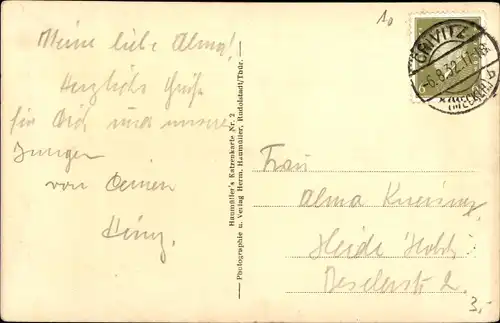 10
Meine liebe Alma!
Herzliche Grüße
für Dich und unsere
Jungen
von Deinem
Heinz.
Haumüller's Katzenkarte Nr. 2
Photographie u. Verlag Herm. Haumüller, Rudolstadt/Thür.
CRIVITZ
-6.8.32.17-18
(MECKLB)
6
Frau
Alma
Heide Holst.
2.
3,-